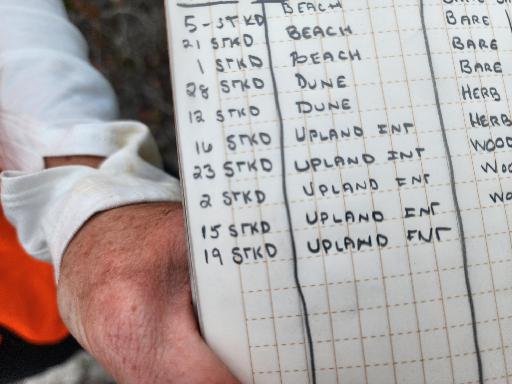 BEACH
5-STKD BEACH BARE
21 STKD BEACH BARE
1 STKD DUNE BARE
28 STKD DUNE HERB
12 STKD UPLAND INT HERB
16 STKD UPLAND INT
23 STKD UPLAND INT
2 STKD UPLAND INT
15 STKD UPLAND INT
19 STKD